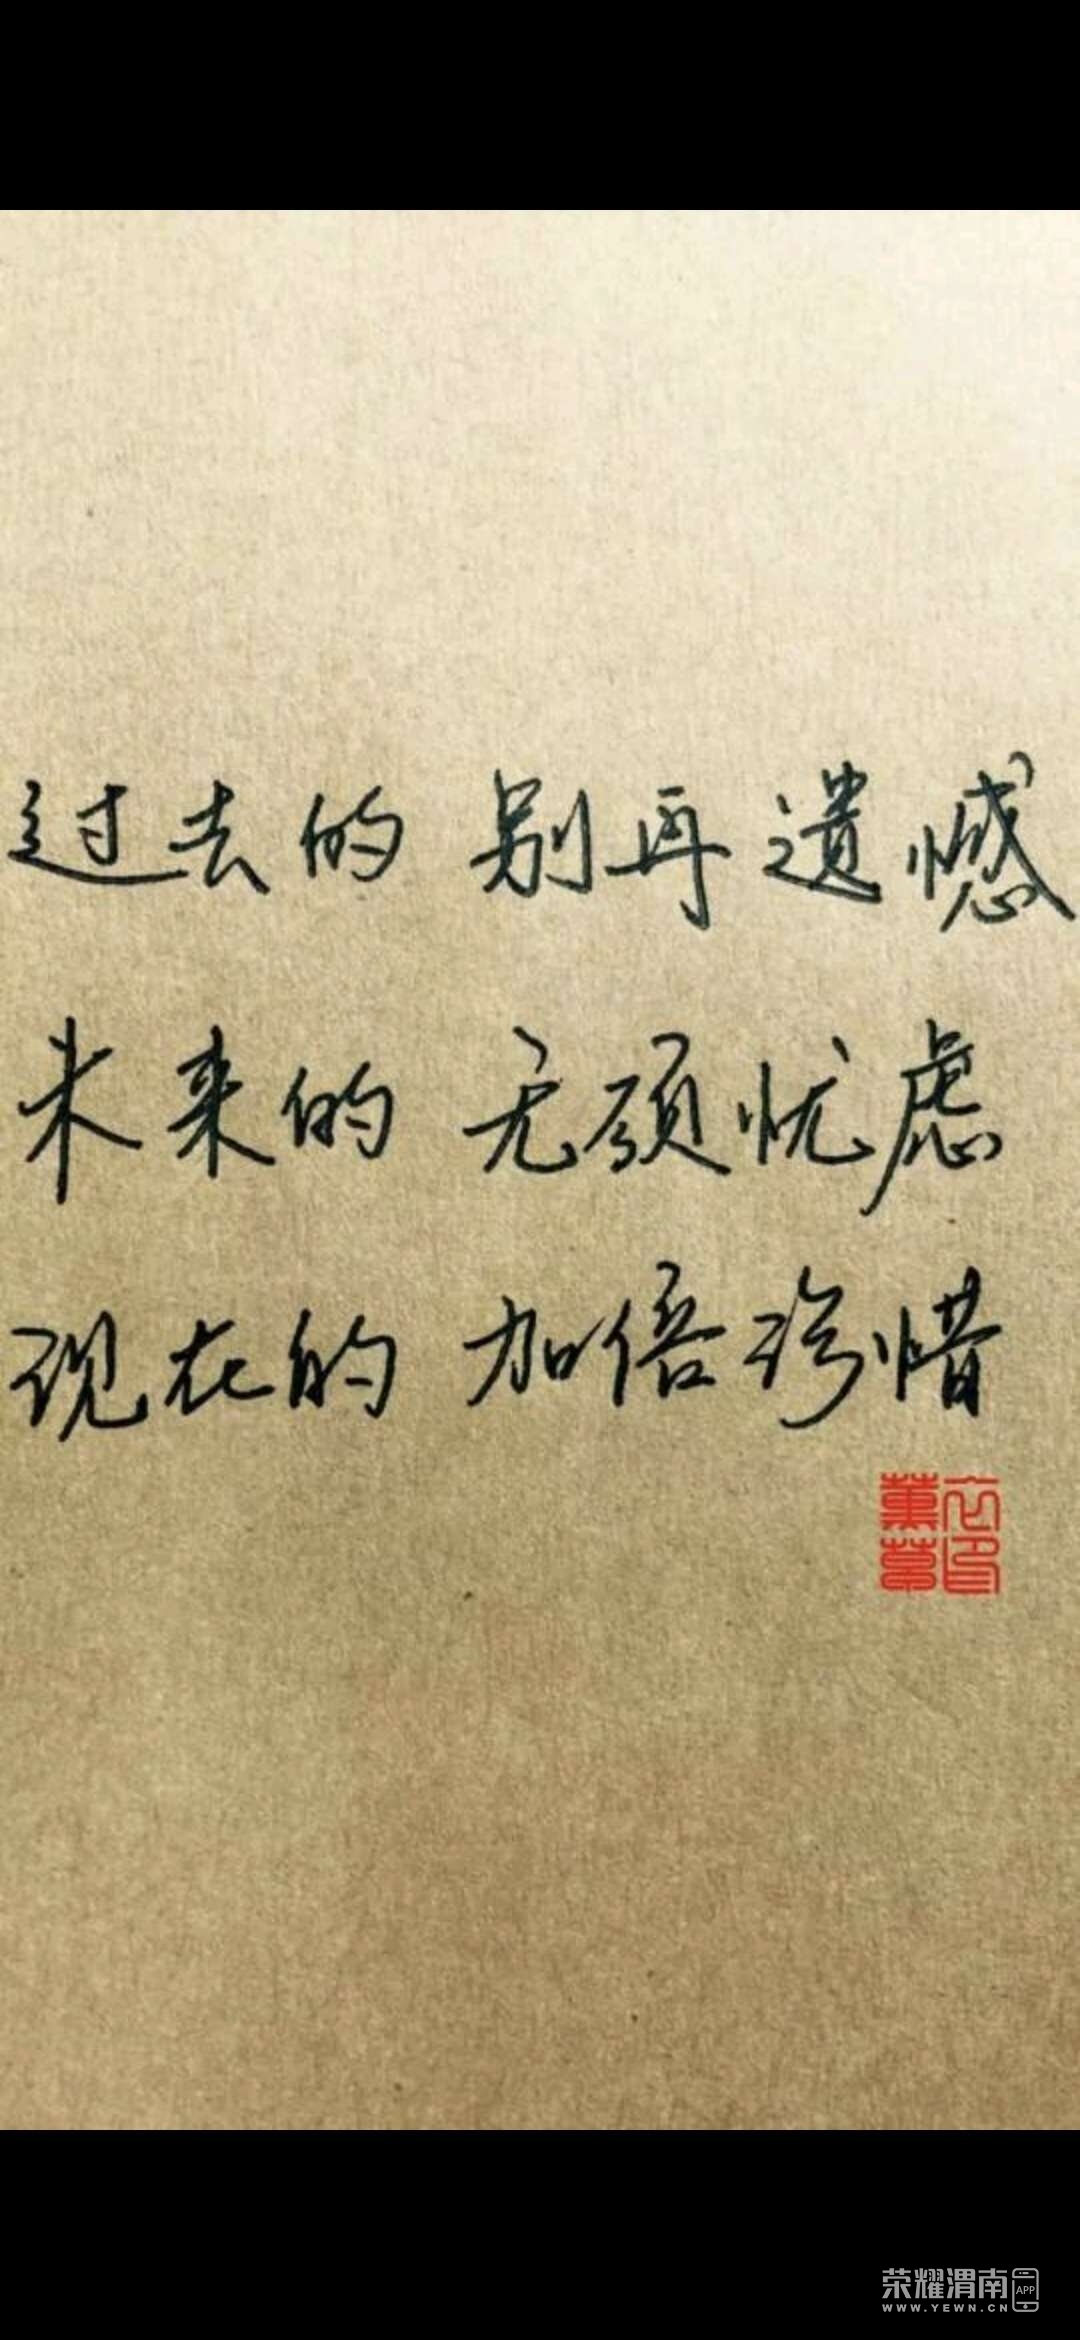 过去的 别再遗憾
未来的 无须忧虑
现在的 加倍珍惜
荣耀渭南 APP
WWW.YEWN.CN